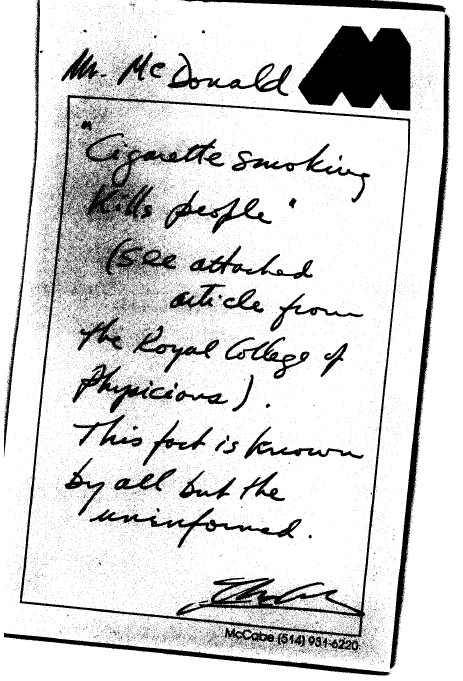 Mr. McDonald
"Cigarette smoking
Kills people"
(see attached
article from
the Royal College of
Physicians).
This fact is known
by all but the
uninformed.
McCabe (514) 931-6220